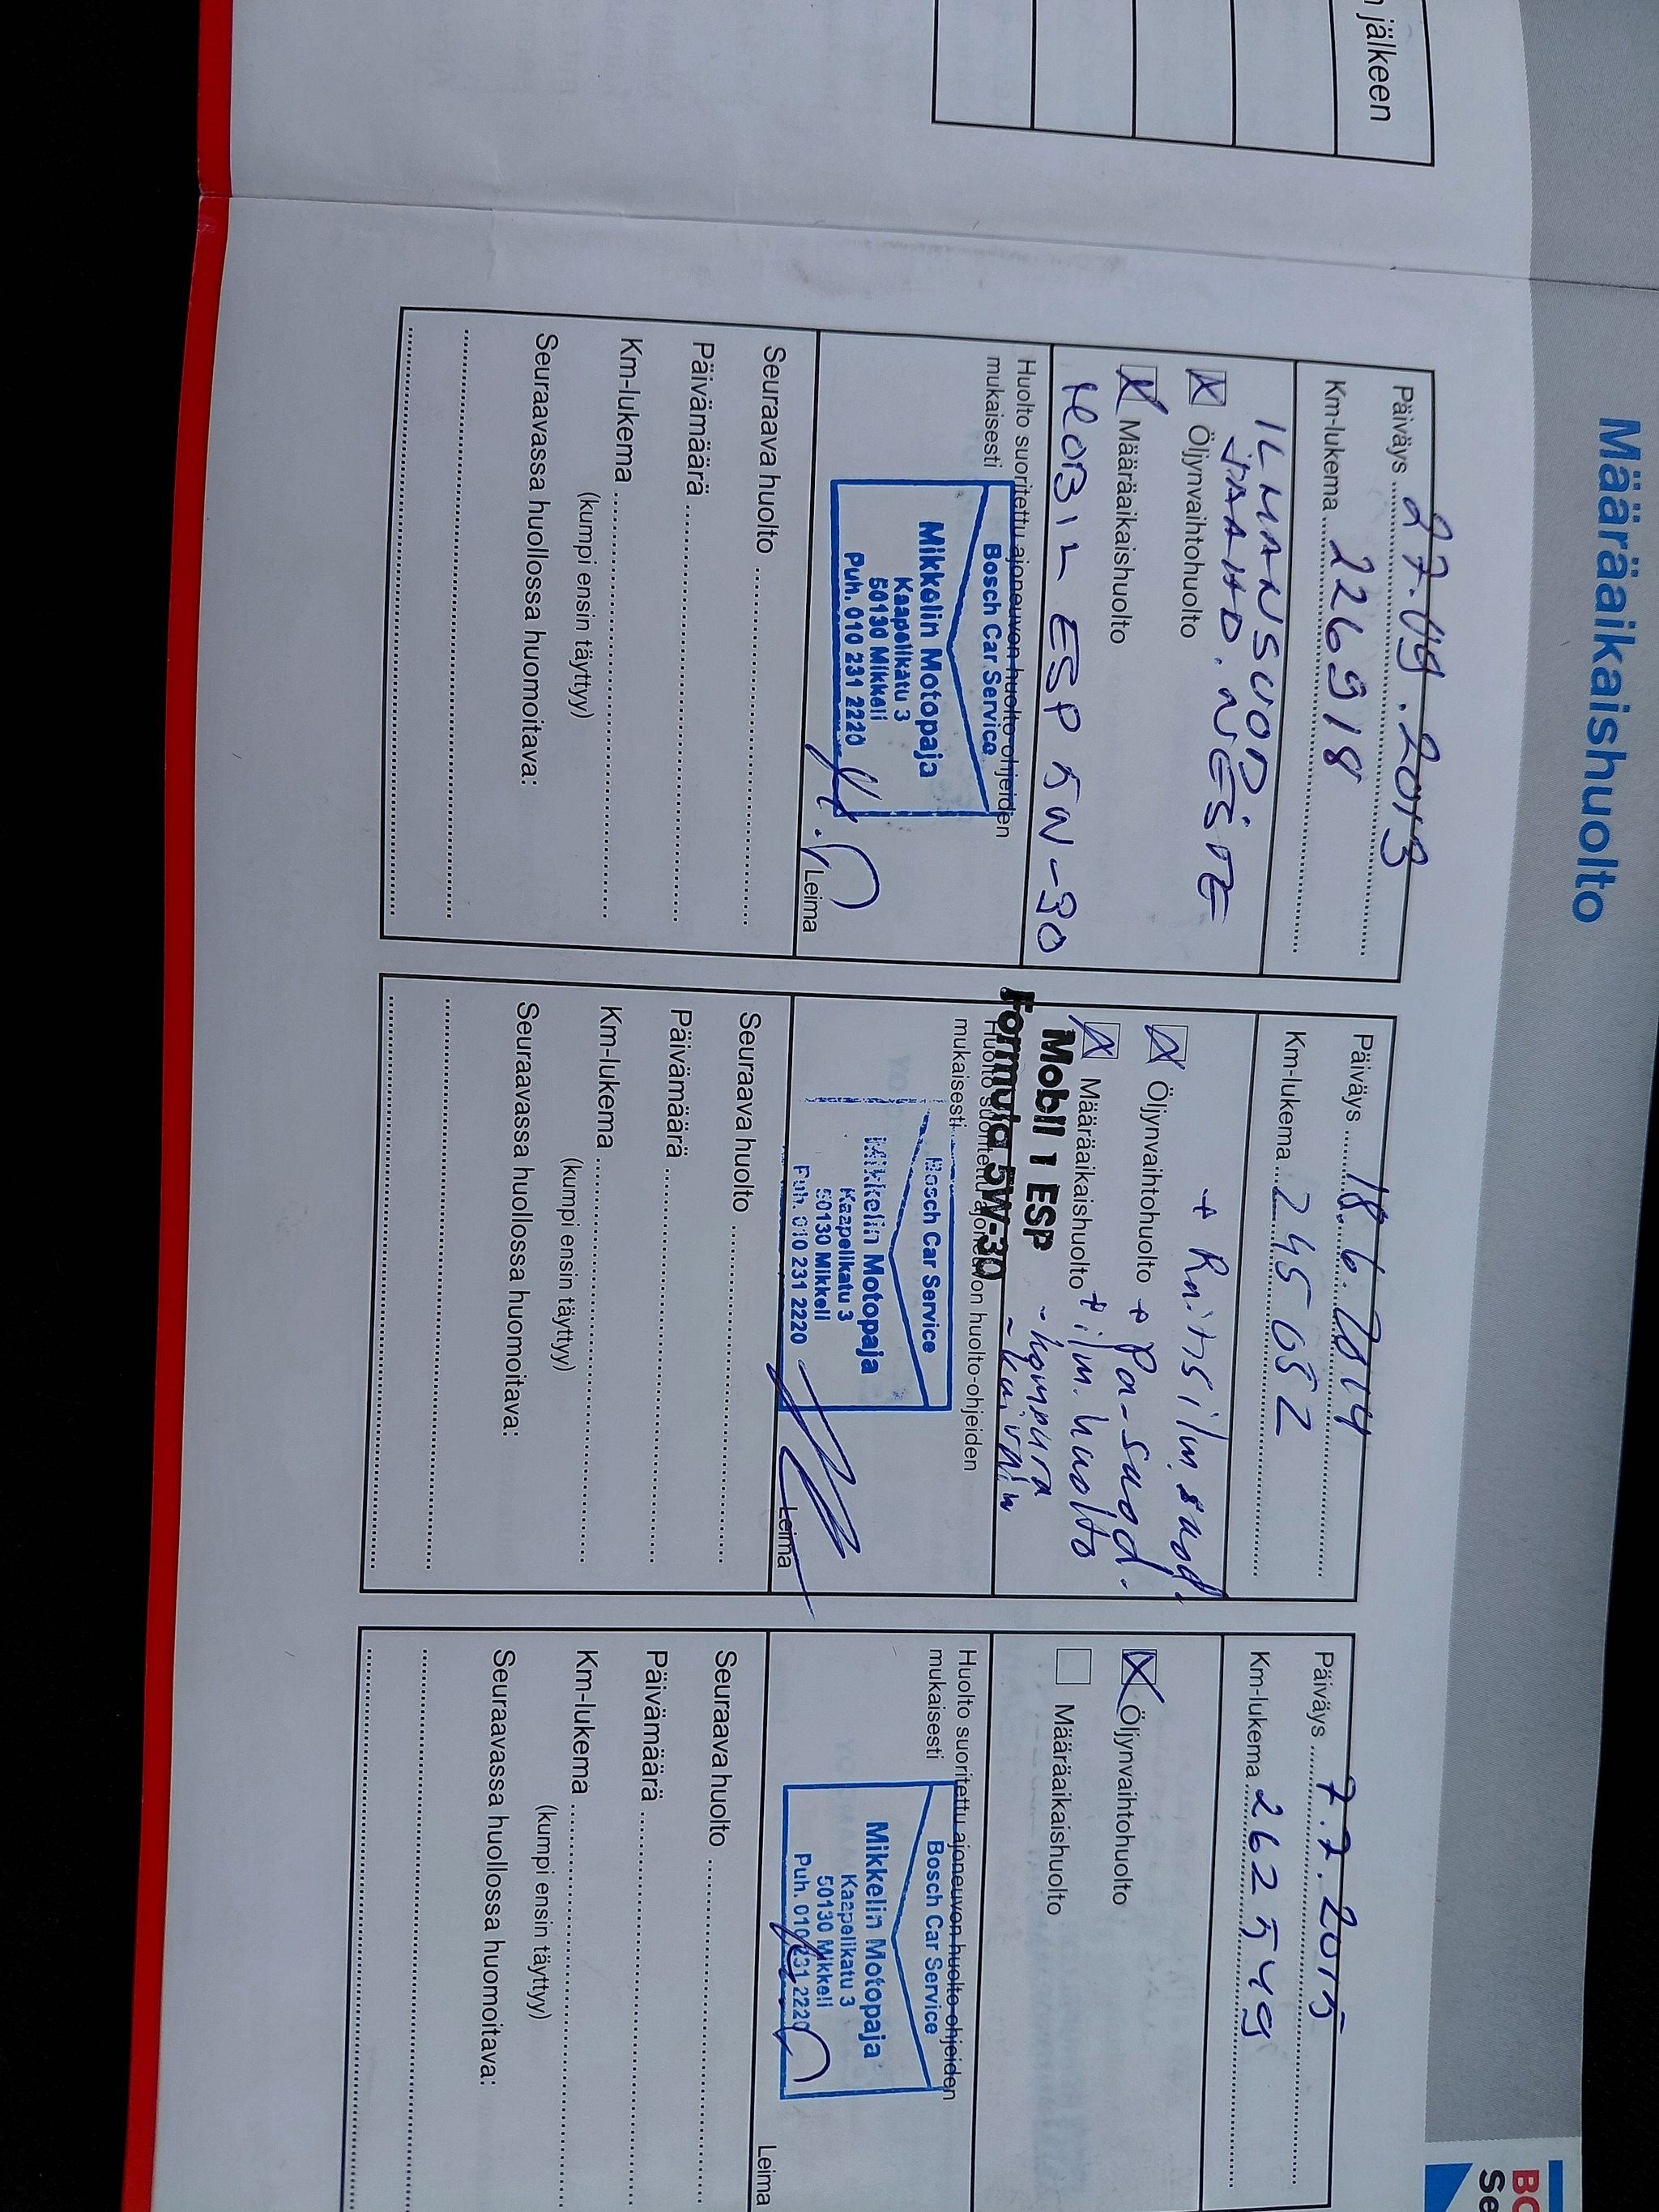 n jälkeen
Määräaikaishuolto
BO
Se
Päiväys 27.09.2013
Km-lukema 226918
ILMANSUOD.
JÄÄHD. NESTE
☒ Öljynvaihtohuolto
☒ Määräaikaishuolto
MOBIL ESP 5W-30
Huolto suoritettu ajoneuvon huolto-ohjeiden
mukaisesti
Bosch Car Service
Mikkelin Motopaja
Kaapelikatu 3
50130 Mikkeli
Puh. 010 231 2220
Leima
Seuraava huolto
Päivämäärä
Km-lukema
(kumpi ensin täyttyy)
Seuraavassa huollossa huomoitava:
Päiväys 18.6.2014
Km-lukema 245052
+ Raitisilm.suod.
☒ Öljynvaihtohuolto + Pa-suod.
☒ Määräaikaishuolto + ilm. huolto
Mobil 1 ESP - kompura
Formula 5W-30 - kuivain
Huolto suoritettu ajoneuvon huolto-ohjeiden
mukaisesti
Bosch Car Service
Mikkelin Motopaja
Kaapelikatu 3
50130 Mikkeli
Puh. 010 231 2220
Leima
Seuraava huolto
Päivämäärä
Km-lukema
(kumpi ensin täyttyy)
Seuraavassa huollossa huomoitava:
Päiväys 7.7.2015
Km-lukema 262549
☒ Öljynvaihtohuolto
☐ Määräaikaishuolto
Huolto suoritettu ajoneuvon huolto-ohjeiden
mukaisesti
Bosch Car Service
Mikkelin Motopaja
Kaapelikatu 3
50130 Mikkeli
Puh. 010 231 2220
Leima
Seuraava huolto
Päivämäärä
Km-lukema
(kumpi ensin täyttyy)
Seuraavassa huollossa huomoitava: